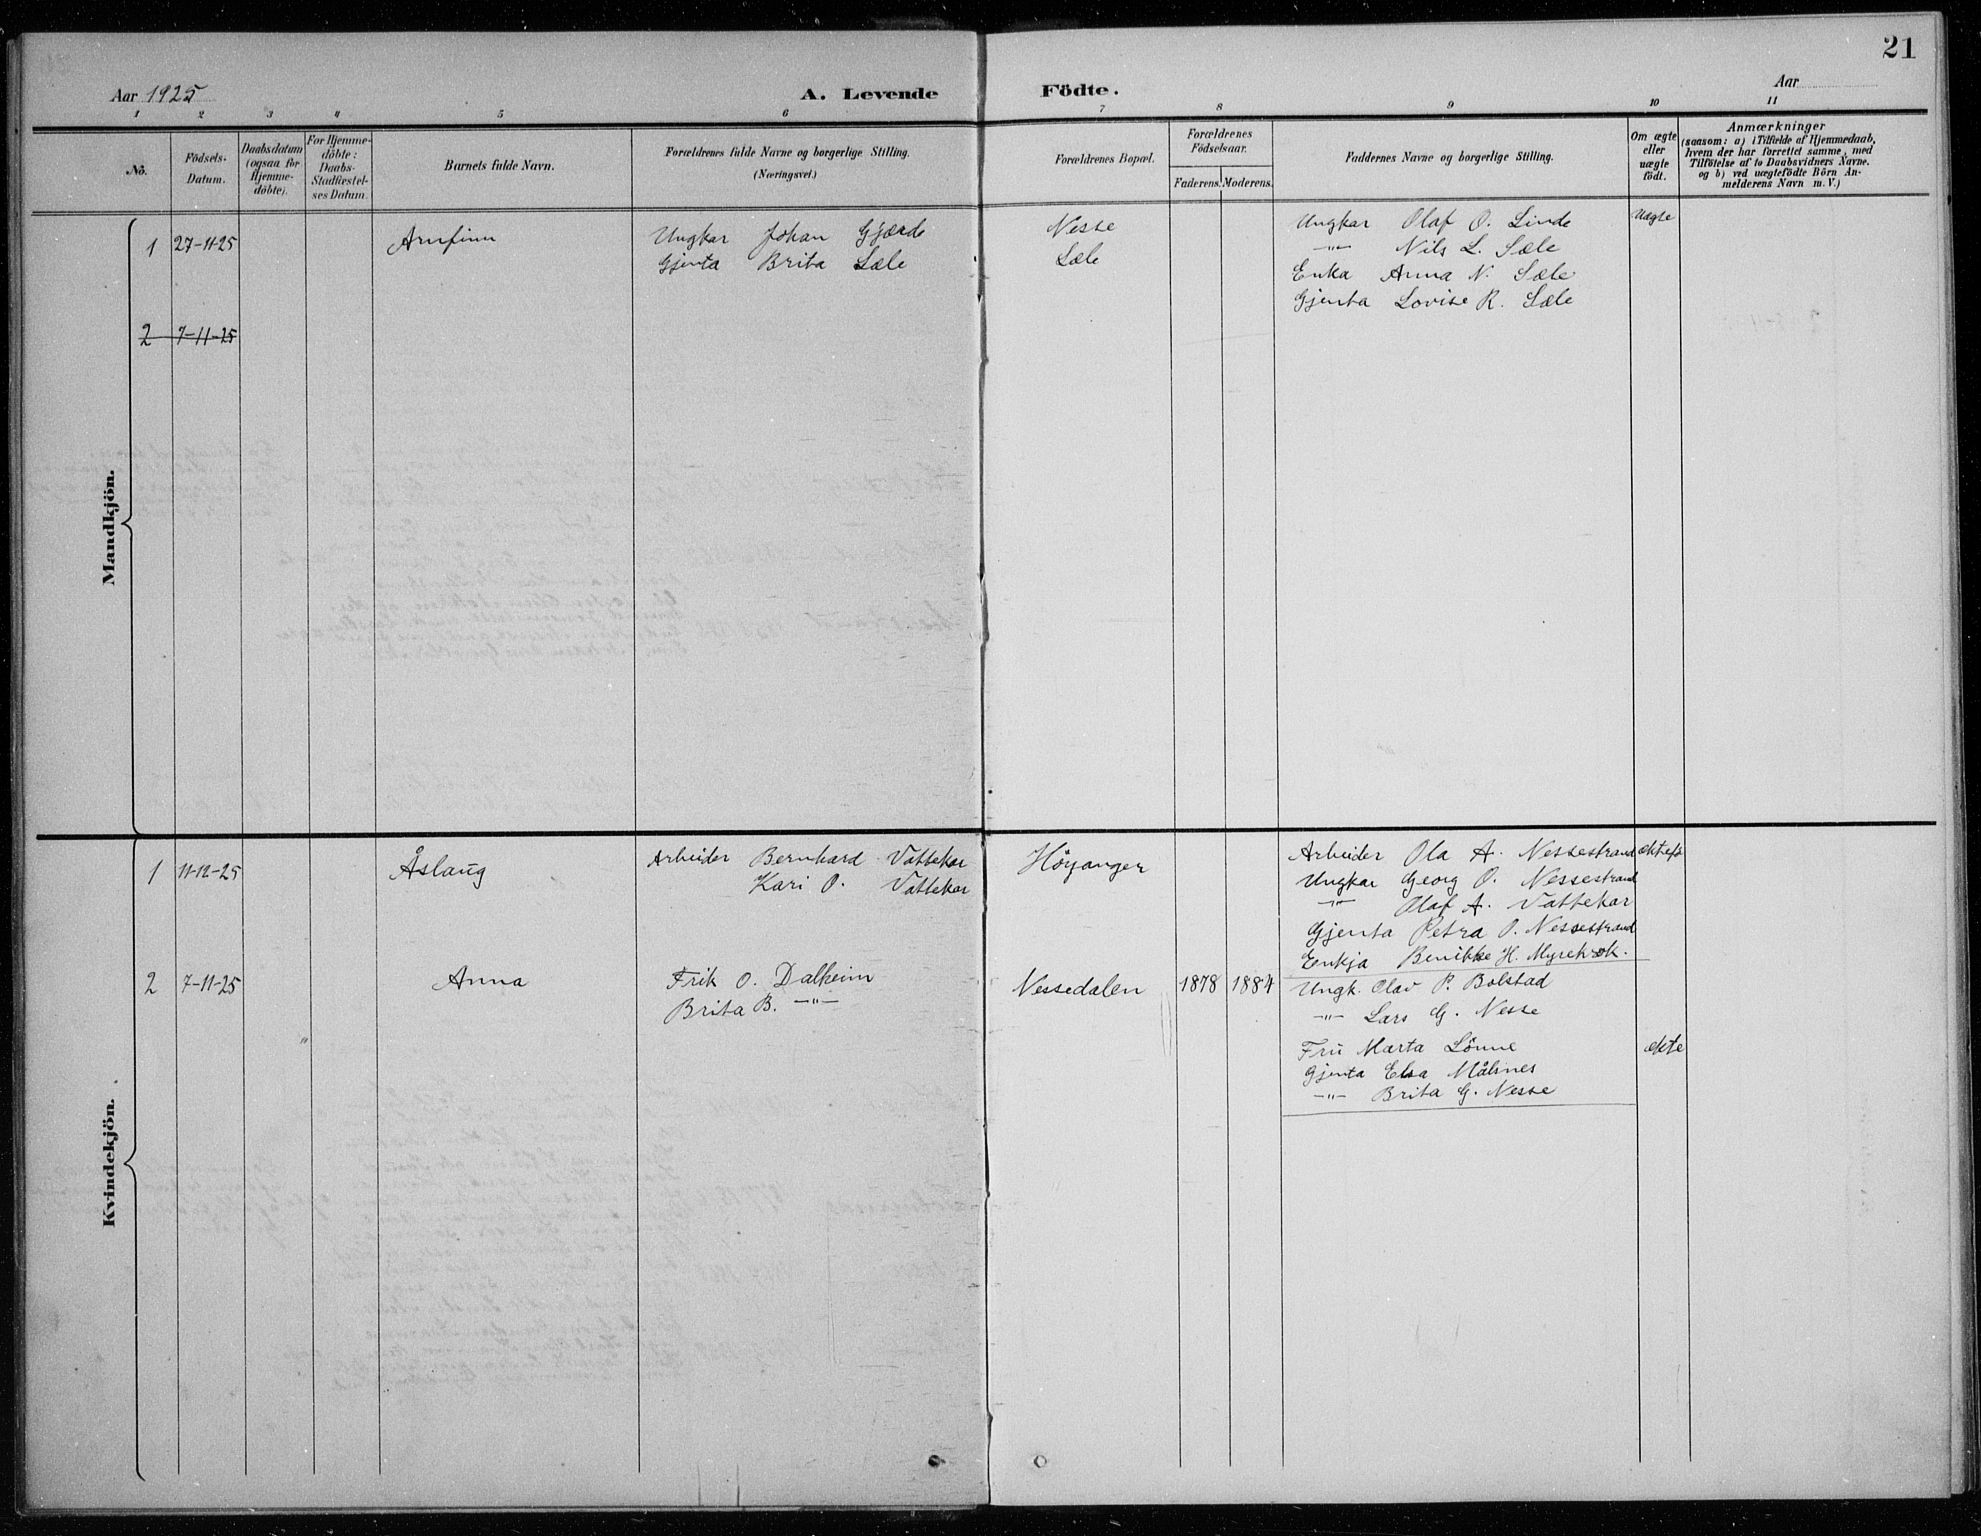 21
Aar 1925
A. Levende Födte.
Aar
1 2 3 4 5 6 7 8 9 10 11
No.
Födsels-
Datum.
Daabsdatum
(ogsaa for
Hjemme-
döbte).
For Hjemme-
döbte:
Daabs-
Stadfæstel-
ses Datum.
Barnets fulde Navn.
Forældrenes fulde Navne og borgerlige Stilling.
(Næringsvei.)
Forældrenes Bopæl.
Forældrenes
Födselsaar.
Faderens. Moderens.
Faddernes Navne og borgerlige Stilling.
Om ægte
eller
uægte
födt.
Anmærkninger
(saasom: a) i Tilfælde af Hjemmedaab,
hvem der har forrettet samme, med
Tilföielse af to Daabsvidners Navne.
og b) ved uægtefödte Börn An-
melderens Navn m. V.)
Mandkjön.
1 27-11-25 Arnfinn Ungkar Johan Gjærde Nesse Ungkar Olaf O. Linde Uægte
Gjenta Brita Sæle Sæle -"- Nils L. Sæle
Enka Anna N. Sæle
Gjenta Lovise R. Sæle
2 7-11-25
Kvindekjön.
1 11-12-25 Åslaug Arbeider Bernhard Vattekar Höyanger Arbeider Ola A. Nessestrand ektef.
Kari O. Vattekar Ungkar Georg O. Nessestrand
-"- Olaf A. Vattekar
Gjenta Petra O. Nessestrand
Enkja Benikke H.
2 7-11-25 Anna Erik O. Dalheim Nessedalen 1878 1884 Ungk. Olav P. Bolstad
Brita B. -"- -"- Lars G. Nesse
Fru Marta Lönne ekte
Gjenta Elsa Målsnes
-"- Brita G. Nesse